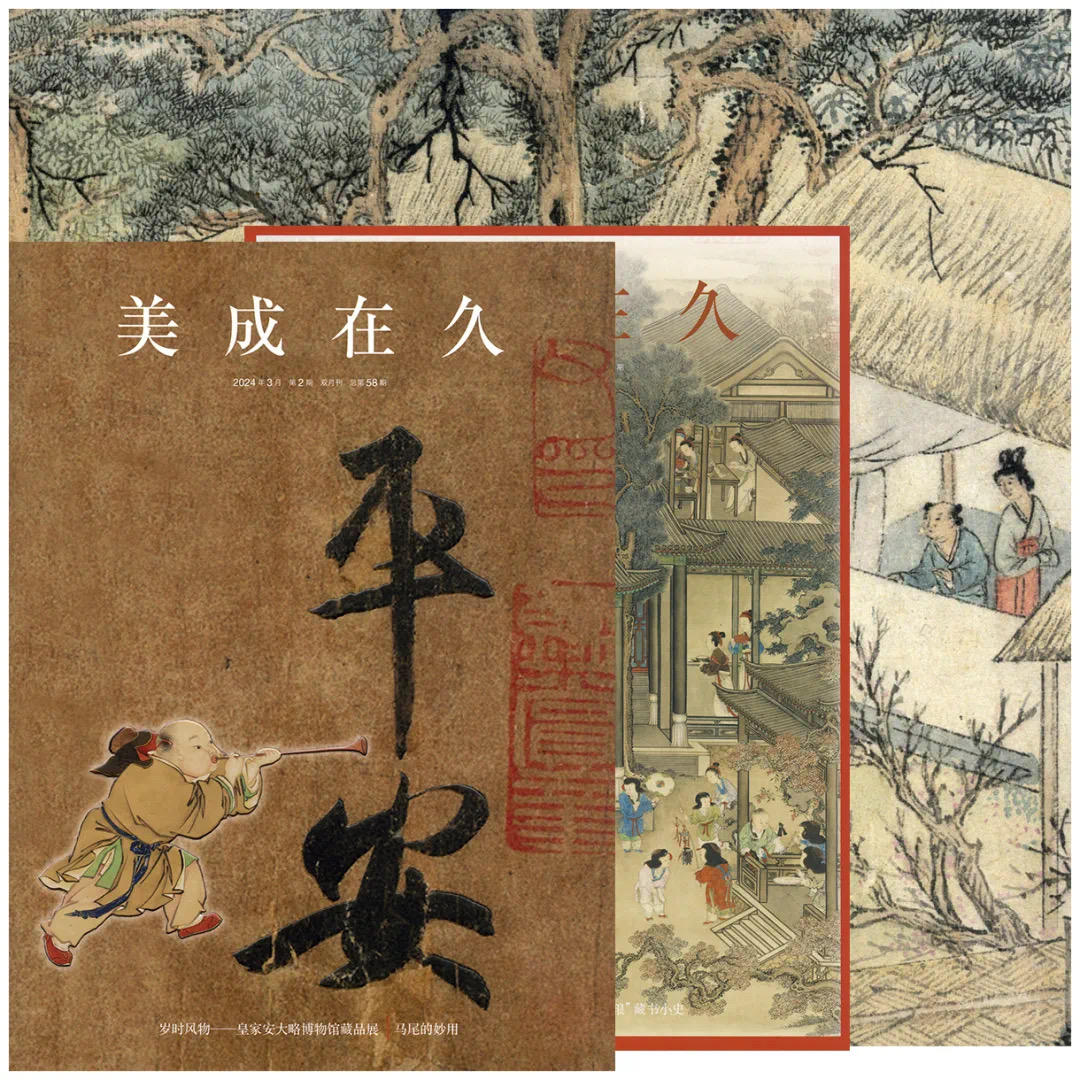 美成在久
2024年3月 第2期 双月刊 总第58期
平安
岁时风物——皇家安大略博物馆藏品展 马尾的妙用
在久
期
娘”藏书小史